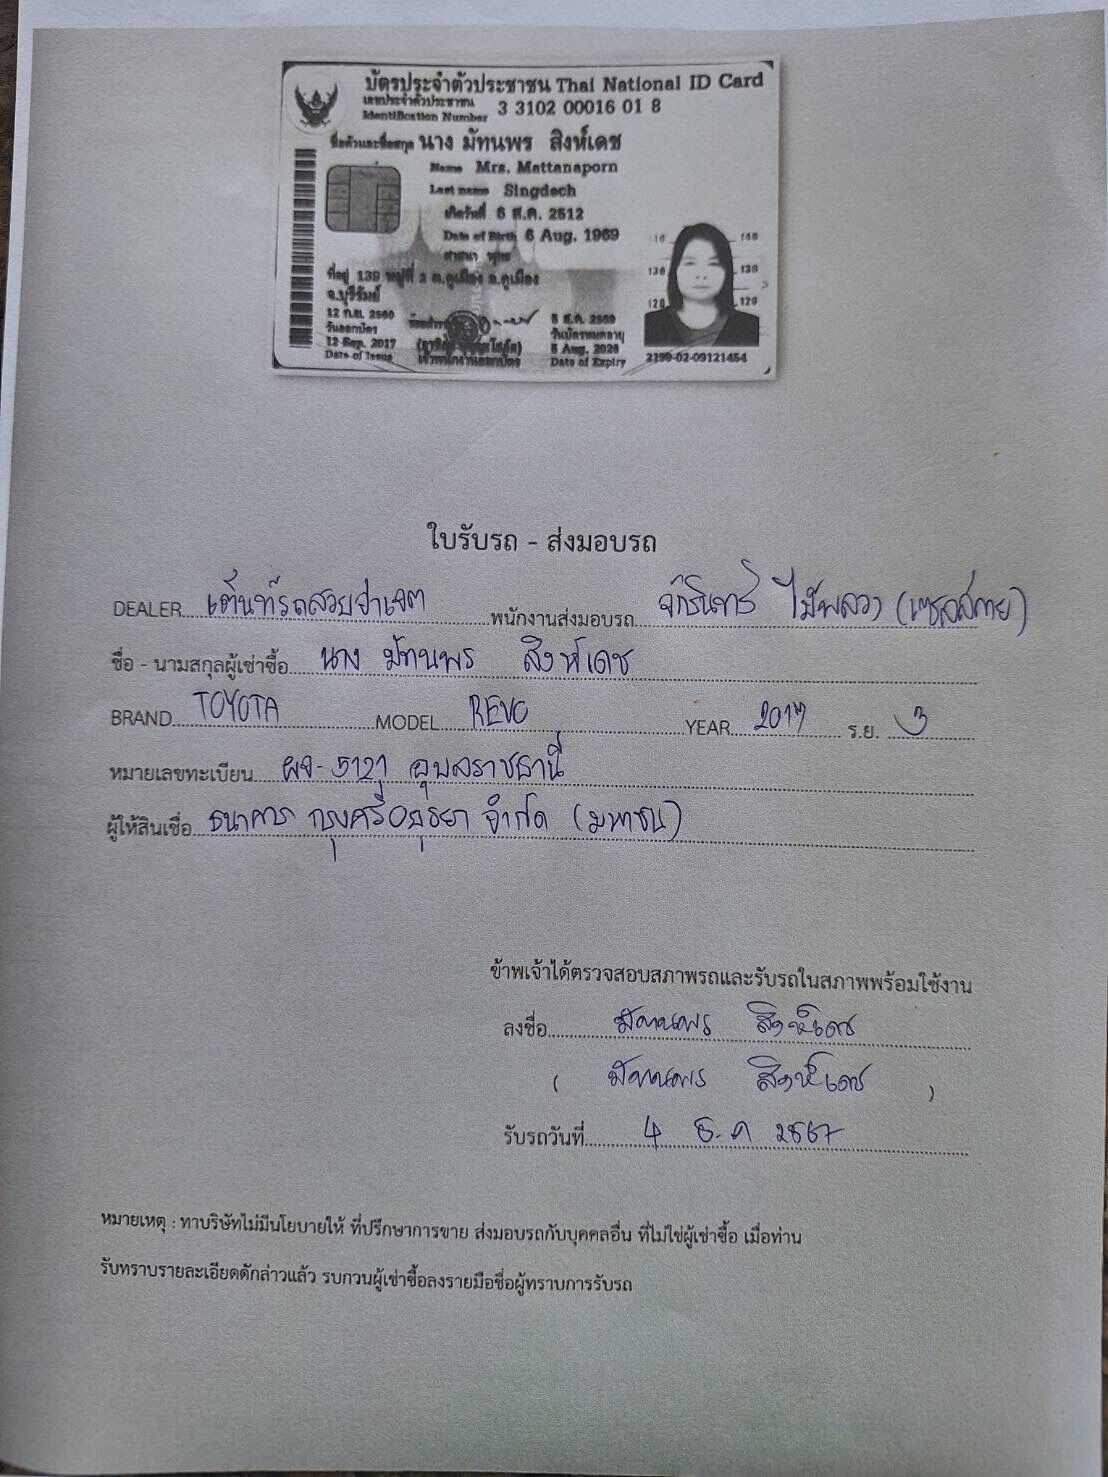 บัตรประจำตัวประชาชน Thai National ID Card
เลขประจำตัวประชาชน
Identification Number 3 3102 00016 01 8
ชื่อตัวและชื่อสกุล นาง มัทนพร สิงห์เดช
Name Mrs. Mattanaporn
Last name Singdech
เกิดวันที่ 6 ส.ค. 2512
Date of Birth 6 Aug. 1969
ศาสนา พุทธ
ที่อยู่ 139 หมู่ที่ 2 ต.คูเมือง อ.คูเมือง
จ.บุรีรัมย์
12 ก.ย. 2560
วันออกบัตร
12 Sep. 2017
Date of Issue
เจ้าพนักงานออกบัตร
5 ส.ค. 2569
วันบัตรหมดอายุ
5 Aug. 2026
Date of Expiry
2199-02-09121454
ใบรับรถ - ส่งมอบรถ
DEALER เต็นท์รถสวยจ่าเจต พนักงานส่งมอบรถ จักรินทร์ ไม้พลวง (เซลล์กาย)
ชื่อ - นามสกุลผู้เช่าซื้อ นาง มัทนพร สิงห์เดช
BRAND TOYOTA MODEL REVO YEAR 2017 ร.ย. 3
หมายเลขทะเบียน ผจ-5121 อุบลราชธานี
ผู้ให้สินเชื่อ ธนาคาร กรุงศรีอยุธยา จำกัด (มหาชน)
ข้าพเจ้าได้ตรวจสอบสภาพรถและรับรถในสภาพพร้อมใช้งาน
ลงชื่อ มัทนพร สิงห์เดช
( มัทนพร สิงห์เดช )
รับรถวันที่ 4 ธ.ค 2567
หมายเหตุ : ทาบริษัทไม่มีนโยบายให้ ที่ปรึกษาการขาย ส่งมอบรถกับบุคคลอื่น ที่ไม่ใช่ผู้เช่าซื้อ เมื่อท่าน
รับทราบรายละเอียดดักล่าวแล้ว รบกวนผู้เช่าซื้อลงรายมือชื่อผู้ทราบการรับรถ